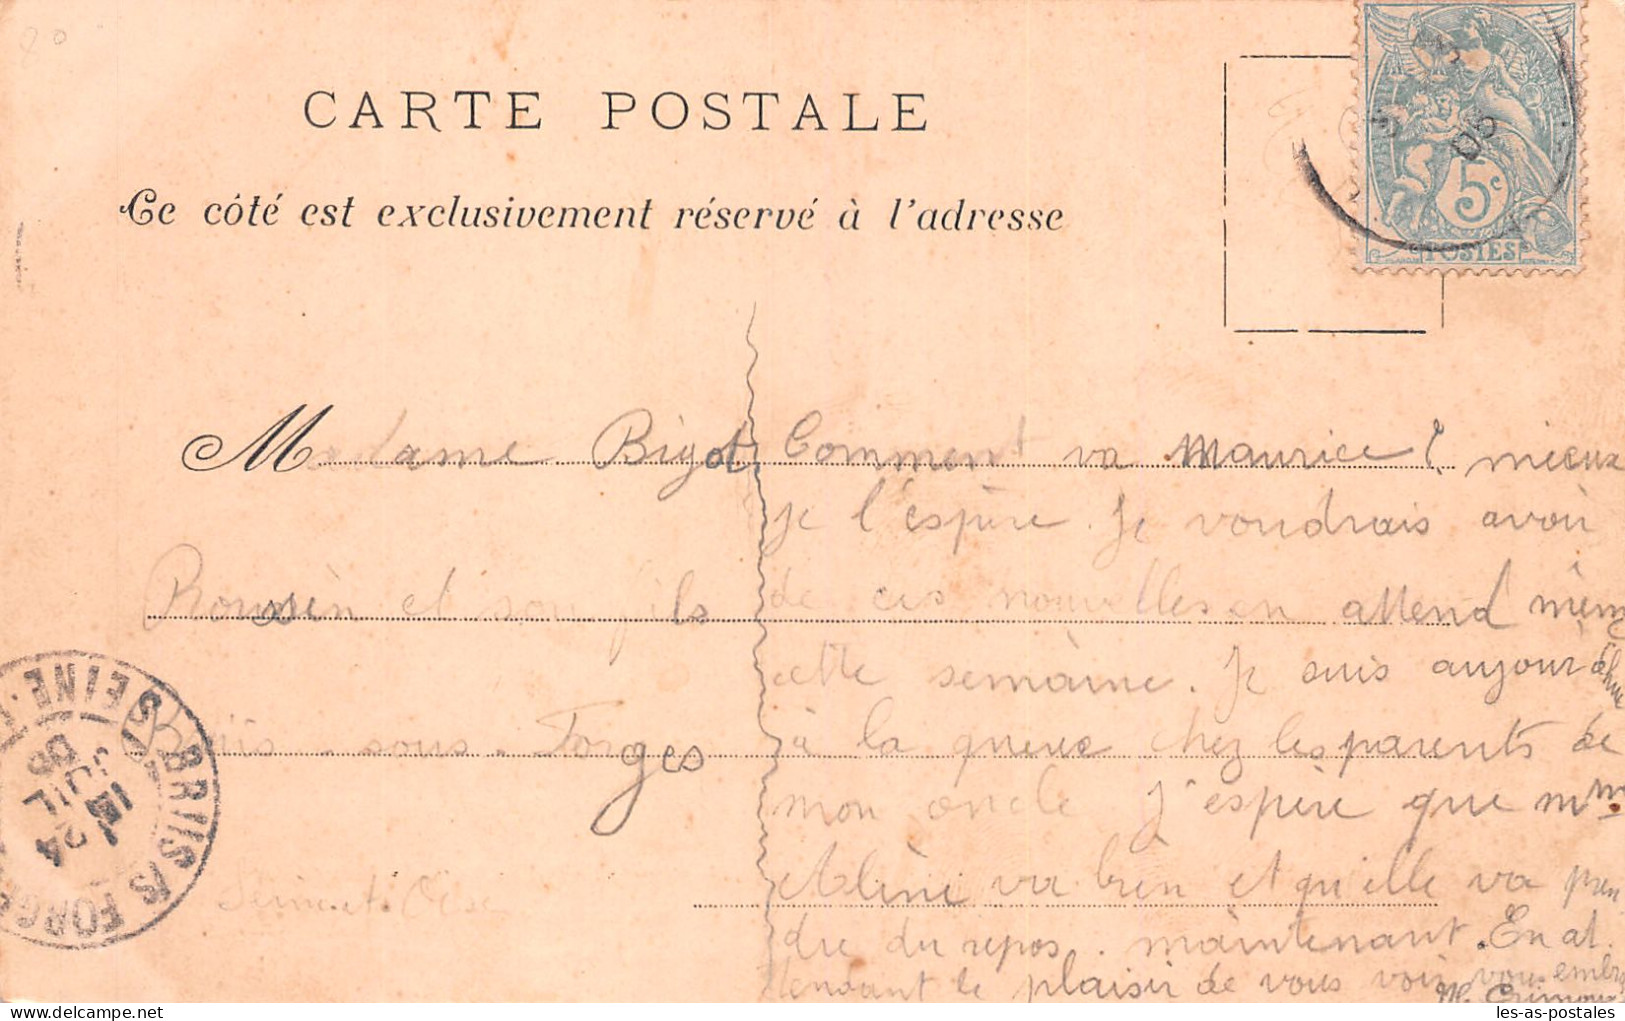 CARTE POSTALE
Ce côté est exclusivement réservé à l'adresse
5c
POSTES
05
Madame Bigot
Roussin et son fils
Briis-sous-Forges
Seine et Oise
Comment va Maurice? mieux
je l'espère. Je voudrais avoir
de ces nouvelles en attend même
cette semaine. Je suis aujour
à la queue chez les parents de
mon oncle J'espère que Mme
Aline va bien et qu'elle va pren
dre du repos. maintenant. En at
tendant le plaisir de vous voir vous embra
M.
BRIIS S/S FORGES
SEINE
24
JUIL
05
les-as-postales.com